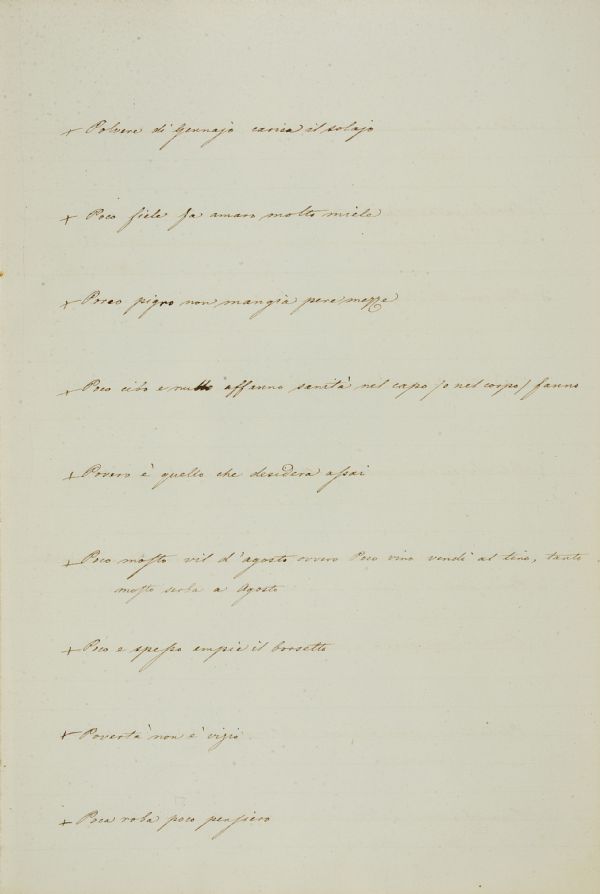 + Polvere di Gennajo carica il solajo
+ Poco fiele fa amaro molto miele
+ Porco pigro non mangia pere mezze
+ Poco cibo e nullo affanno sanità nel capo (o nel corpo) fanno
+ Povero è quello che desidera assai
+ Poco mosto vil d'agosto ovvero Poco vino vendi al tino, tanto
mosto serba a Agosto
+ Poco e spesso empie il borsetto
+ Povertà non è vizio
+ Poca roba poco pensiero